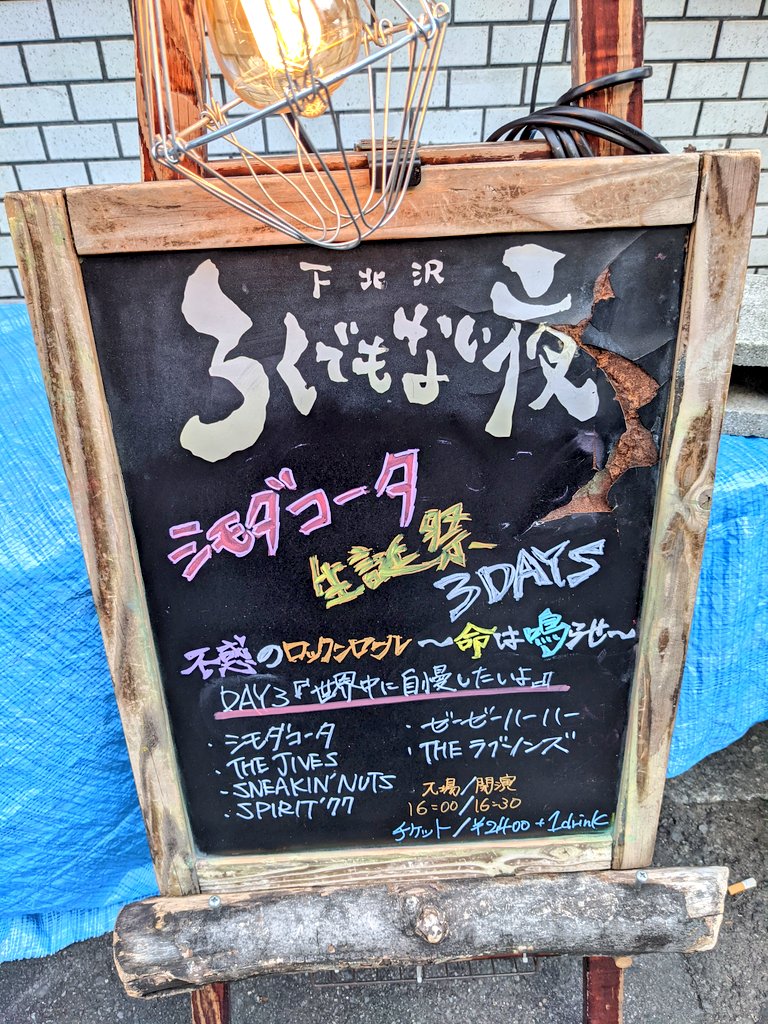 下北沢
ろくでもない夜
シモダコータ
生誕祭
3DAYS
不惑のロックンロール〜命は鳴らせ〜
DAY3『世界中に自慢したいよ』
・シモダコータ
・THE JIVES
・SNEAKIN' NUTS
・SPIRIT'77
・ゼーゼーハーハー
・THE ラブノンズ
入場/開演
16:00/16:30
チケット/¥2400+1drink